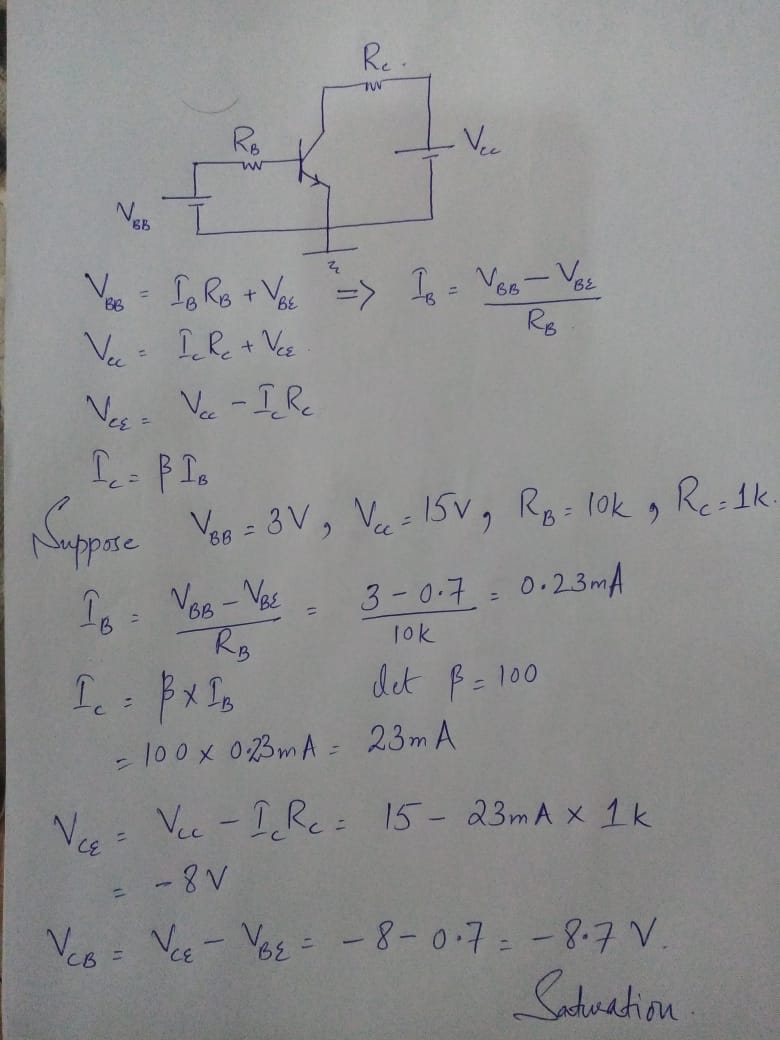 R_C.
R_B
V_CC
V_BB
V_BB = I_B R_B + V_BE => I_B = (V_BB - V_BE) / R_B
V_CC = I_C R_C + V_CE.
V_CE = V_CC - I_C R_C
I_C = β I_B
Suppose V_BB = 3V, V_CC = 15V, R_B = 10k, R_C = 1k.
I_B = (V_BB - V_BE) / R_B = (3 - 0.7) / 10k = 0.23mA
I_C = β x I_B let β = 100
= 100 x 0.23mA = 23mA
V_CE = V_CC - I_C R_C = 15 - 23mA x 1k
= -8V
V_CB = V_CE - V_BE = -8 - 0.7 = -8.7 V.
Saturation.